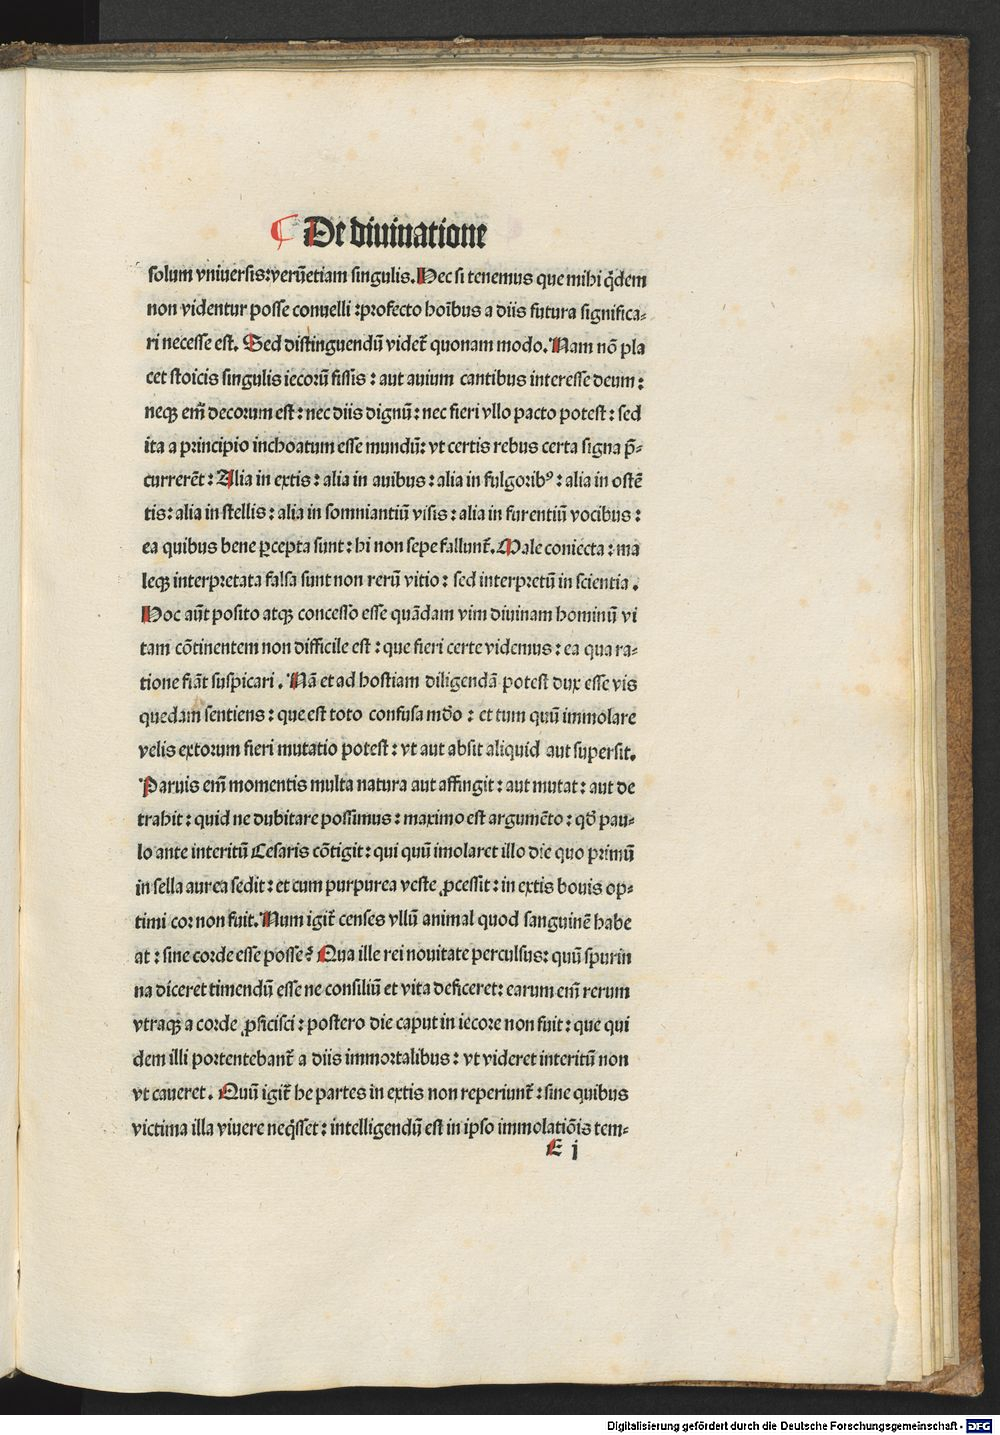 ¶ De diuinatione
solum vniuersis:verũetiam singulis. Hec si tenemus que mihi q̇dem
non videntur posse conuelli :profecto hoĩbus a diis futura significa⸗
ri necesse est. Sed distinguendũ videt᷑ quonam modo. Nam nõ pla
cet stoicis singulis iecorũ fissis : aut auium cantibus interesse deum :
neqꝫ em̃ decorum est : nec diis dignũ : nec fieri vllo pacto potest : sed
ita a principio inchoatum esse mundũ: vt certis rebus certa signa p̃⸗
currerẽt : Alia in extis : alia in auibus : alia in fulgoribꝰ : alia in ostẽ
tis: alia in stellis : alia in somniantiũ visis : alia in furentiũ vocibus :
ea quibus bene ꝑcepta sunt : hi non sepe fallunt᷑. Male coniecta : ma
leqꝫ interpretata falsa sunt non rerũ vitio : sed interpretũ in scientia .
Hoc aũt posito atqꝫ concesso esse quãdam vim diuinam hominũ vi
tam cõtinentem non difficile est : que fieri certe videmus : ea qua ra⸗
tione fiãt suspicari . Nã et ad hostiam diligendã potest dux esse vis
quedam sentiens : que est toto confusa mõo : et tum quũ immolare
velis extorum fieri mutatio potest : vt aut absit aliquid aut supersit.
Paruis em̃ momentis multa natura aut affingit : aut mutat : aut de
trahit : quid ne dubitare possimus : maximo est argumẽto : qõ pau⸗
lo ante interitũ Cesaris cõtigit : qui quũ imolaret illo die quo primũ
in sella aurea sedit : et cum purpurea veste ꝓcessit : in extis bouis op⸗
timi cor non fuit. Num igit᷑ censes vllũ animal quod sanguinẽ habe
at : sine corde esse posse? Qua ille rei nouitate perculsus: quũ spurin
na diceret timendũ esse ne consiliũ et vita deficeret: earum em̃ rerum
vtraqꝫ a corde ꝓficisci : postero die caput in iecore non fuit : que qui
dem illi portentebant᷑ a diis immortalibus : vt videret interitũ non
vt caueret . Quũ igit᷑ he partes in extis non reperiunt᷑ : sine quibus
victima illa viuere neq̇sset : intelligendũ est in ipso immolatiõis tem⸗
E j
Digitalisierung gefördert durch die Deutsche Forschungsgemeinschaft - DFG